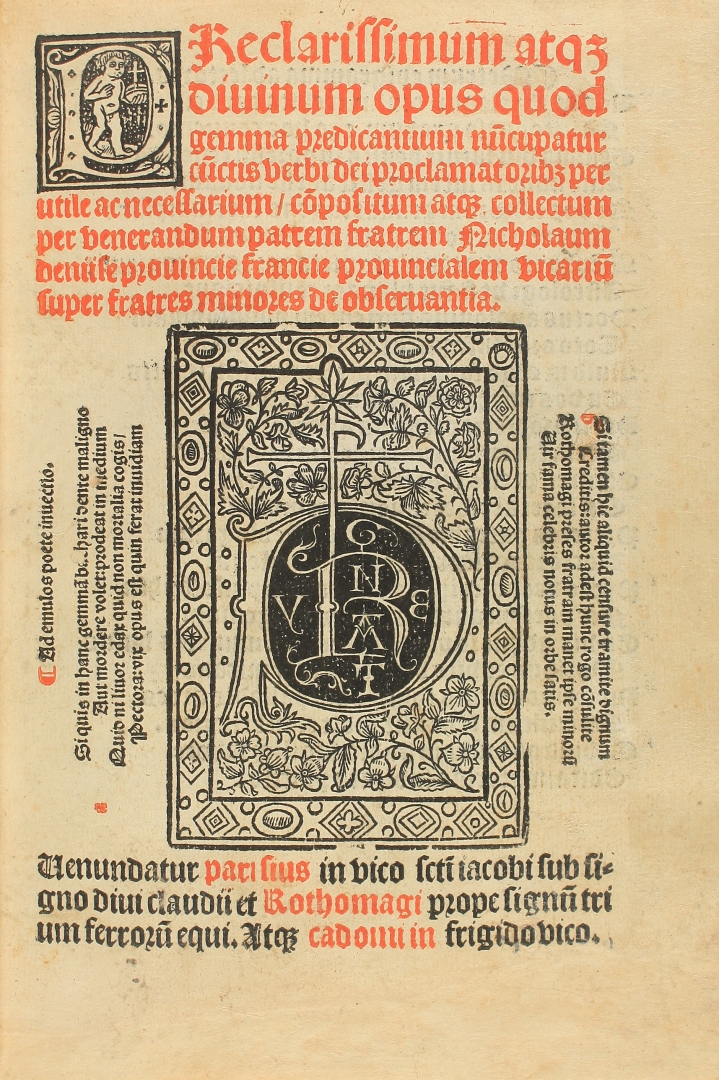 PReclarissimum atqꝫ
diuinum opus quod
gemma predicantium nūcupatur
cūctis verbi dei proclamatoribꝫ per
utile ac necessarium / cōpositum atqꝫ collectum
per venerandum patrem fratrem Nicholaum
deniise prouincie francie prouincialem vicariū
super fratres minores de obseruantia.
⁋ Ad emulos poete inuectio.
Siquis in hanc gemmā hari dente maligno
Aut mordere volet: prodeat in medium
Quid ni liuor edax quid non mortalia cogis /
Pectora: vix opus est quin ferat inuidiam
⁋ Si tamen hic aliquid censure tramite dignum
Creditis: autor adest hunc rogo cōsulite
Rothomagi preses fratrum manet ipse minorū
Uir fama celebris notus in orbe satis.
Uenundatur parisius in vico sctī iacobi sub si-
gno diui claudii et Rothomagi prope signū tri
um ferrorū equi. Atqꝫ cadomi in frigido vico.